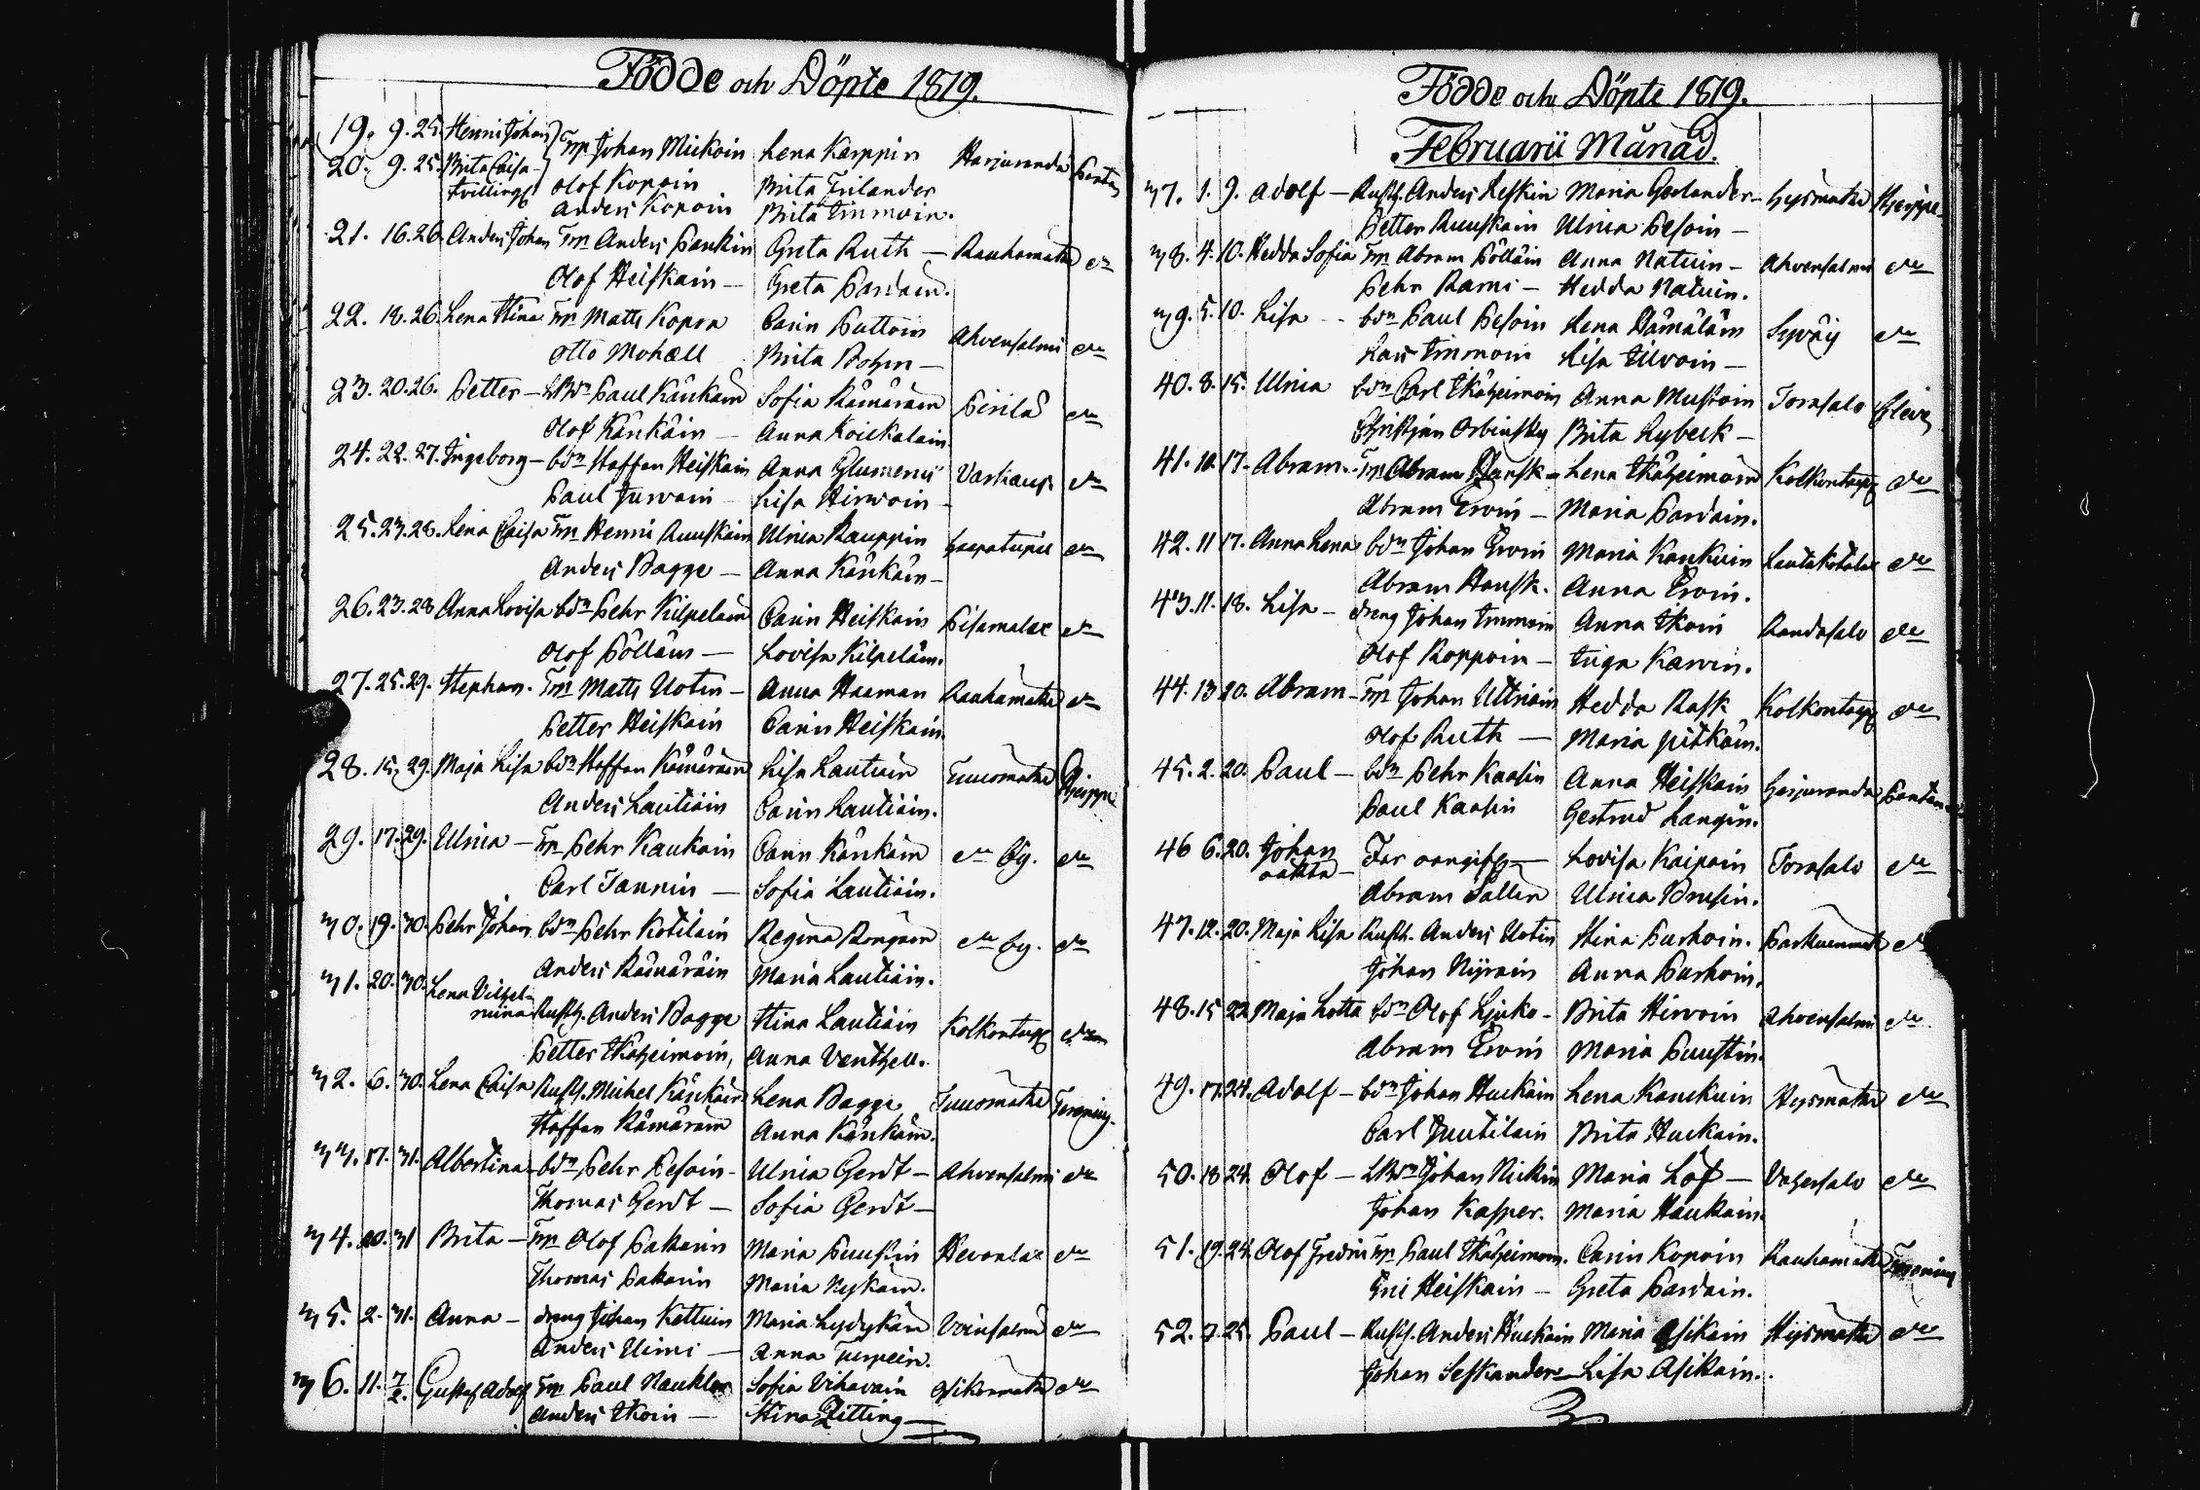 Födde och Döpte 1819.
19. 9. 25. Henric Johan Tp Johan Mickoin Lena Karppin Harjuranda
20. 9. 25. Brita Caisa
tvillingr Olof Kopoin Brita Frilander
Anders Kopoin Brita Immoin.
21. 16. 26. Anders Johan Tp Anders Pankin Greta Ruth — Rauhamäki dº
Olof Heiskain — Greta Pardain.
22. 18. 26. Lena Stina Tp Matts Kopra Carin Puttoin Ahvensalmi dº
Otto Mohell Brita Bohm —
23. 20. 26. Petter — Paul Känkäin Sofia Rämäräin dº
Olof Känkäin — Anna Koickalain
24. 22. 27. Ingeborg — bdn Staffan Heiskain Anna Glumerus Varkaus dº
Paul Jurvain Lisa Hirvoin —
25. 23. 28. Lena Caisa Tp Henric Ruuskain Ulrica Rauppin dº
Anders Bagge — Anna Känkäin —
26. 23. 28 Anna Lovisa bdn Pehr Kilpeläin Carin Heiskain Pisamalax dº
Olof Pölläin — Lovisa Kilpeläin.
27. 25. 29. Stephan. Tp Matts Uotin — Anna Haaman Rauhamäki dº
Petter Heiskain Carin Heiskain.
28. 15. 29. Maja Lisa bdn Staffan Rämäräin Lisa Lautiain Tuusmäki
Anders Lautiäin Carin Lautiäin.
29. 17. 29. Ulrica — Tp Pehr Kaukain Carin Känkäin dº by. dº
Carl Tannin — Sofia Lautiäin.
30. 19. 30. Pehr Johan bdn Pehr Kotilain Regina Rongain dº by. dº
Anders Rämäräin Maria Lautiäin.
31. 20. 30. Lena Vilhel-
mina Rusth. Anders Bagge Stina Lautiäin Kolkontaip. dº
Petter Ikäheimoin, Anna Ventzell.
32. 6. 30. Lena Caisa Rusth. Michel Känkäin Lena Bagge Tuusmäki
Staffan Rämäräin Anna Känkäin.
33. 17. 31. Albertina bdn Pehr Pesoin — Ulrica Gerdt — Ahvensalmi dº
Thomas Gerdt — Sofia Gerdt —
34. 20. 31 Brita — Tp Olof Pakarin Maria Puustin dº
Thomas Pakarin Maria Nykäin.
35. 2. 31. Anna — dreng Johan Kettuin Maria Lydykäin dº
Anders Uimi — Anna Turpein.
36. 11. 7/2. Gustaf Adolf Tp Paul Naukler Sofia Vihavain Osikonmäki dº
Anders Ikoin — Stina Zitting —
Födde och Döpte 1819.
Februarii Månad.
37. 1. 9. Adolf — Rusth. Anders Leskin Maria Goslander —
Petter Ruuskain Ulrica Pesoin —
38. 4. 10. Hedda Sofia Tp Abram Pölläin Anna Natuin — Ahvensalmi dº
Pehr Rami — Hedda Natuin.
39. 5. 10. Lisa — bdn Paul Pesoin Lena Hämäläin dº
Lars Immoin Lisa Ilvoin —
40. 8. 15. Ulrica bdn Carl Ikäheimoin Anna Mustoin Torasalo
Christian Orbinsky Brita Nybeck —
41. 10. 17. Abram. Tp Abram Hansk — Lena Ikäheimoin Kolkontaip. dº
Abram Ervin — Maria Pardain.
42. 11 17. Anna Lena bdn Johan Ervin Maria Kankuin Lautakotalax dº
Abram Hansk. Anna Ervin.
43. 11. 18. Lisa — dreng Johan Immoin Anna Ikoin Randasalo dº
Olof Roppoin — Inga Karvin.
44. 13 20. Abram — Tp Johan Ultriain Hedda Rask Kolkontaip. dº
Olof Ruth — Maria Pitkäin.
45. 2. 20. Paul — bdn Pehr Kaasin Anna Heiskain Harjuranda
Paul Kaasin Gertrud Langin.
46 6. 20. Johan
oäkta — Far oangifn — Lovisa Kaipain Torasalo dº
Abram Sallin Ulrica Brusin.
47. 12. 20. Maja Lisa Rusth. Anders Uotin Stina Purhoin. dº
Johan Nyroin Anna Purhoin.
48. 15 22. Maja Lotta bdn Olof Ljuko — Brita Hirvoin Ahvensalmi dº
Abram Ervin Maria Puustin.
49. 17. 24. Adolf — bdn Johan Huckain Lena Kauckuin Hysmäki dº
Carl Juutilain Brita Huckain.
50. 18 24. Olof — Johan Nickin Maria Löf — Vahersalo dº
Johan Kasper. Maria Haukain.
51. 19. 24. Olof Fredric Tp Paul Ikäheimoin. Carin Kopoin Rauhamäki
Eric Heiskain — Greta Pardain.
52. 7. 25. Paul — Rusth. Anders Huckain Maria Asikain Hysmäki dº
Johan Seskander — Lisa Asikain.